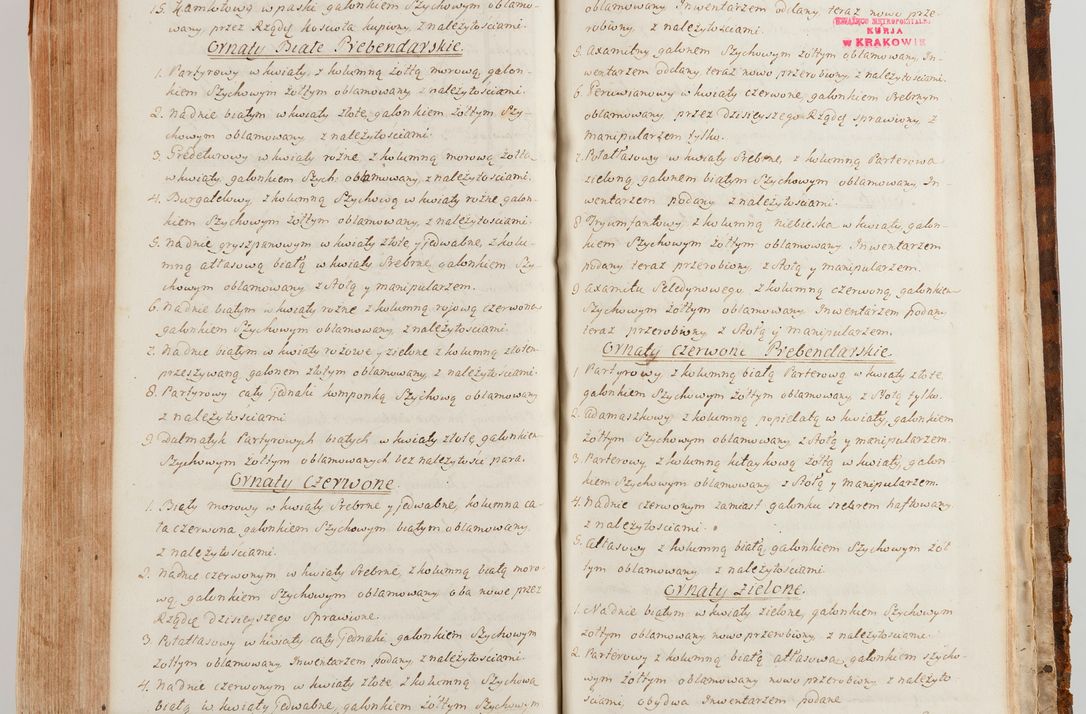 15. Kamlotowy w paski galonkiem Szychowym oblamo-
wany, przez Rządcę Kościoła kupiony, z należytościami.
Ornaty Białe Prebendarskie.
1. Partyrowy w kwiaty, z kolumną żółtą morową, galon-
kiem Szychowym żółtym oblamowany z należytościami.
2. Na dnie białym w kwiaty złote, galonkiem żółtym Szy-
chowym oblamowany z należytościami.
3. Gredeturowy w kwiaty rożne, z kolumną morową żółtą
w kwiaty, galonkiem Szych: oblamowany, z należytościami.
4. Burgatelowy, z kolumną Szychową w kwiaty rożne, galon-
kiem Szychowym żółtym oblamowany, z należytościami.
5. Na dnie gryszpanowym w kwiaty złote y jedwabne, z kolu-
mną atłasową białą w kwiaty srebrne, galonkiem Szy-
chowym oblamowany z Stołą y manipularzem.
6. Na dnie białym w kwiaty rożne z kolumną rojową czerwoną
galonkiem Szychowym oblamowany, z należytościami.
7. Na dnie białym w kwiaty rożowe y zielone z kolumną złotem
przeszywaną, galonem złotym oblamowany, z należytościami.
8. Partyrowy cały jednaki komponką Szychową oblamowany
z należytościami
9. Dalmatyk Partyrowych białych w kwiaty złote, galonkiem
Szychowym żółtym oblamowanych bez należytości para.
Ornaty Czerwone.
1. Biały morowy w kwiaty srebrne y jedwabne, kolumna ca-
ła czerwona, galonkiem Szychowym białym oblamowany,
z należytościami.
2. Na dnie czerwonym w kwiaty srebrne, z kolumną białą moro-
wą, galonkiem Szychowym oblamowany, oba nowe przez
Rządcę dzisieyszego Sprawione.
3. Potatłasowy w kwiaty cały jednaki, galonkiem Szychowym
żółtym oblamowany, Inwentarzem podany, z należytościami.
4. Na dnie czerwonym w kwiaty złote, z kolumną Szychową
białą w kwiaty jedwabne, galonkiem Szychowym
oblamowany Inwentarzem odany teraz nowo prze-
robiony, z należytościami.
KSIĄŻĘCO METROPOLITALNA
KURJA
w KRAKOWIE
5. Axamitny galonem Szychowym żółtym oblamowany, In-
wentarzem oddany, teraz nowo przerobiony, z należytościami.
6. Peruwianowy w kwiaty czerwone, galonkiem srebrnym
oblamowany, przez dzisieyszego Rządcę sprawiony, z
manipularzem tylko.
7. Potatłasowy w kwiaty srebrne, z kolumną Parterową
zieloną, galonem białym Szychowym oblamowany, In-
wentarzem podany z należytościami.
8. Tryumfantowy z kolumną niebieską w kwiaty, galon-
kiem Szychowym żółtym oblamowany Inwentarzem
podany teraz przerobiony, z Stołą y manipularzem.
9. Axamitu Seledynowego, z kolumną czerwoną, galonkiem
Szychowym żółtym oblamowany Inwentarzem podany
teraz przerobiony z Stołą y manipularzem.
Ornaty Czerwone Prebendarskie.
1. Partyrowy, z kolumną białą Parterową w kwiaty złote,
galonkiem Szychowym żółtym oblamowany, z Stołą tylko.
2. Adamaszkowy z kolumną popielatą w kwiaty, galonkiem
żółtym Szychowym oblamowany z Stołą y manipularzem.
3. Parterowy z kolumną kitaykową żółtą w kwiaty, galon
kiem Szychowym oblamowany z Stołą y manipularzem.
4. Na dnie czerwonym zamiast galonku srebrem haftowany
z należytościami.
5. Atłasowy z kolumną białą, galonkiem Szychowym żół
tym oblamowany z należytościami
Ornaty Zielone.
1. Na dnie białym w kwiaty zielone, galonkiem Szychowym
żółtym oblamowany nowo przerobiony, z należytościami.
2. Parterowy z kolumną białą atłasową, galonkiem szycho-
wym żółtym oblamowany nowo przerobiony, z należyto
ściami, obydwa Inwentarzem podane